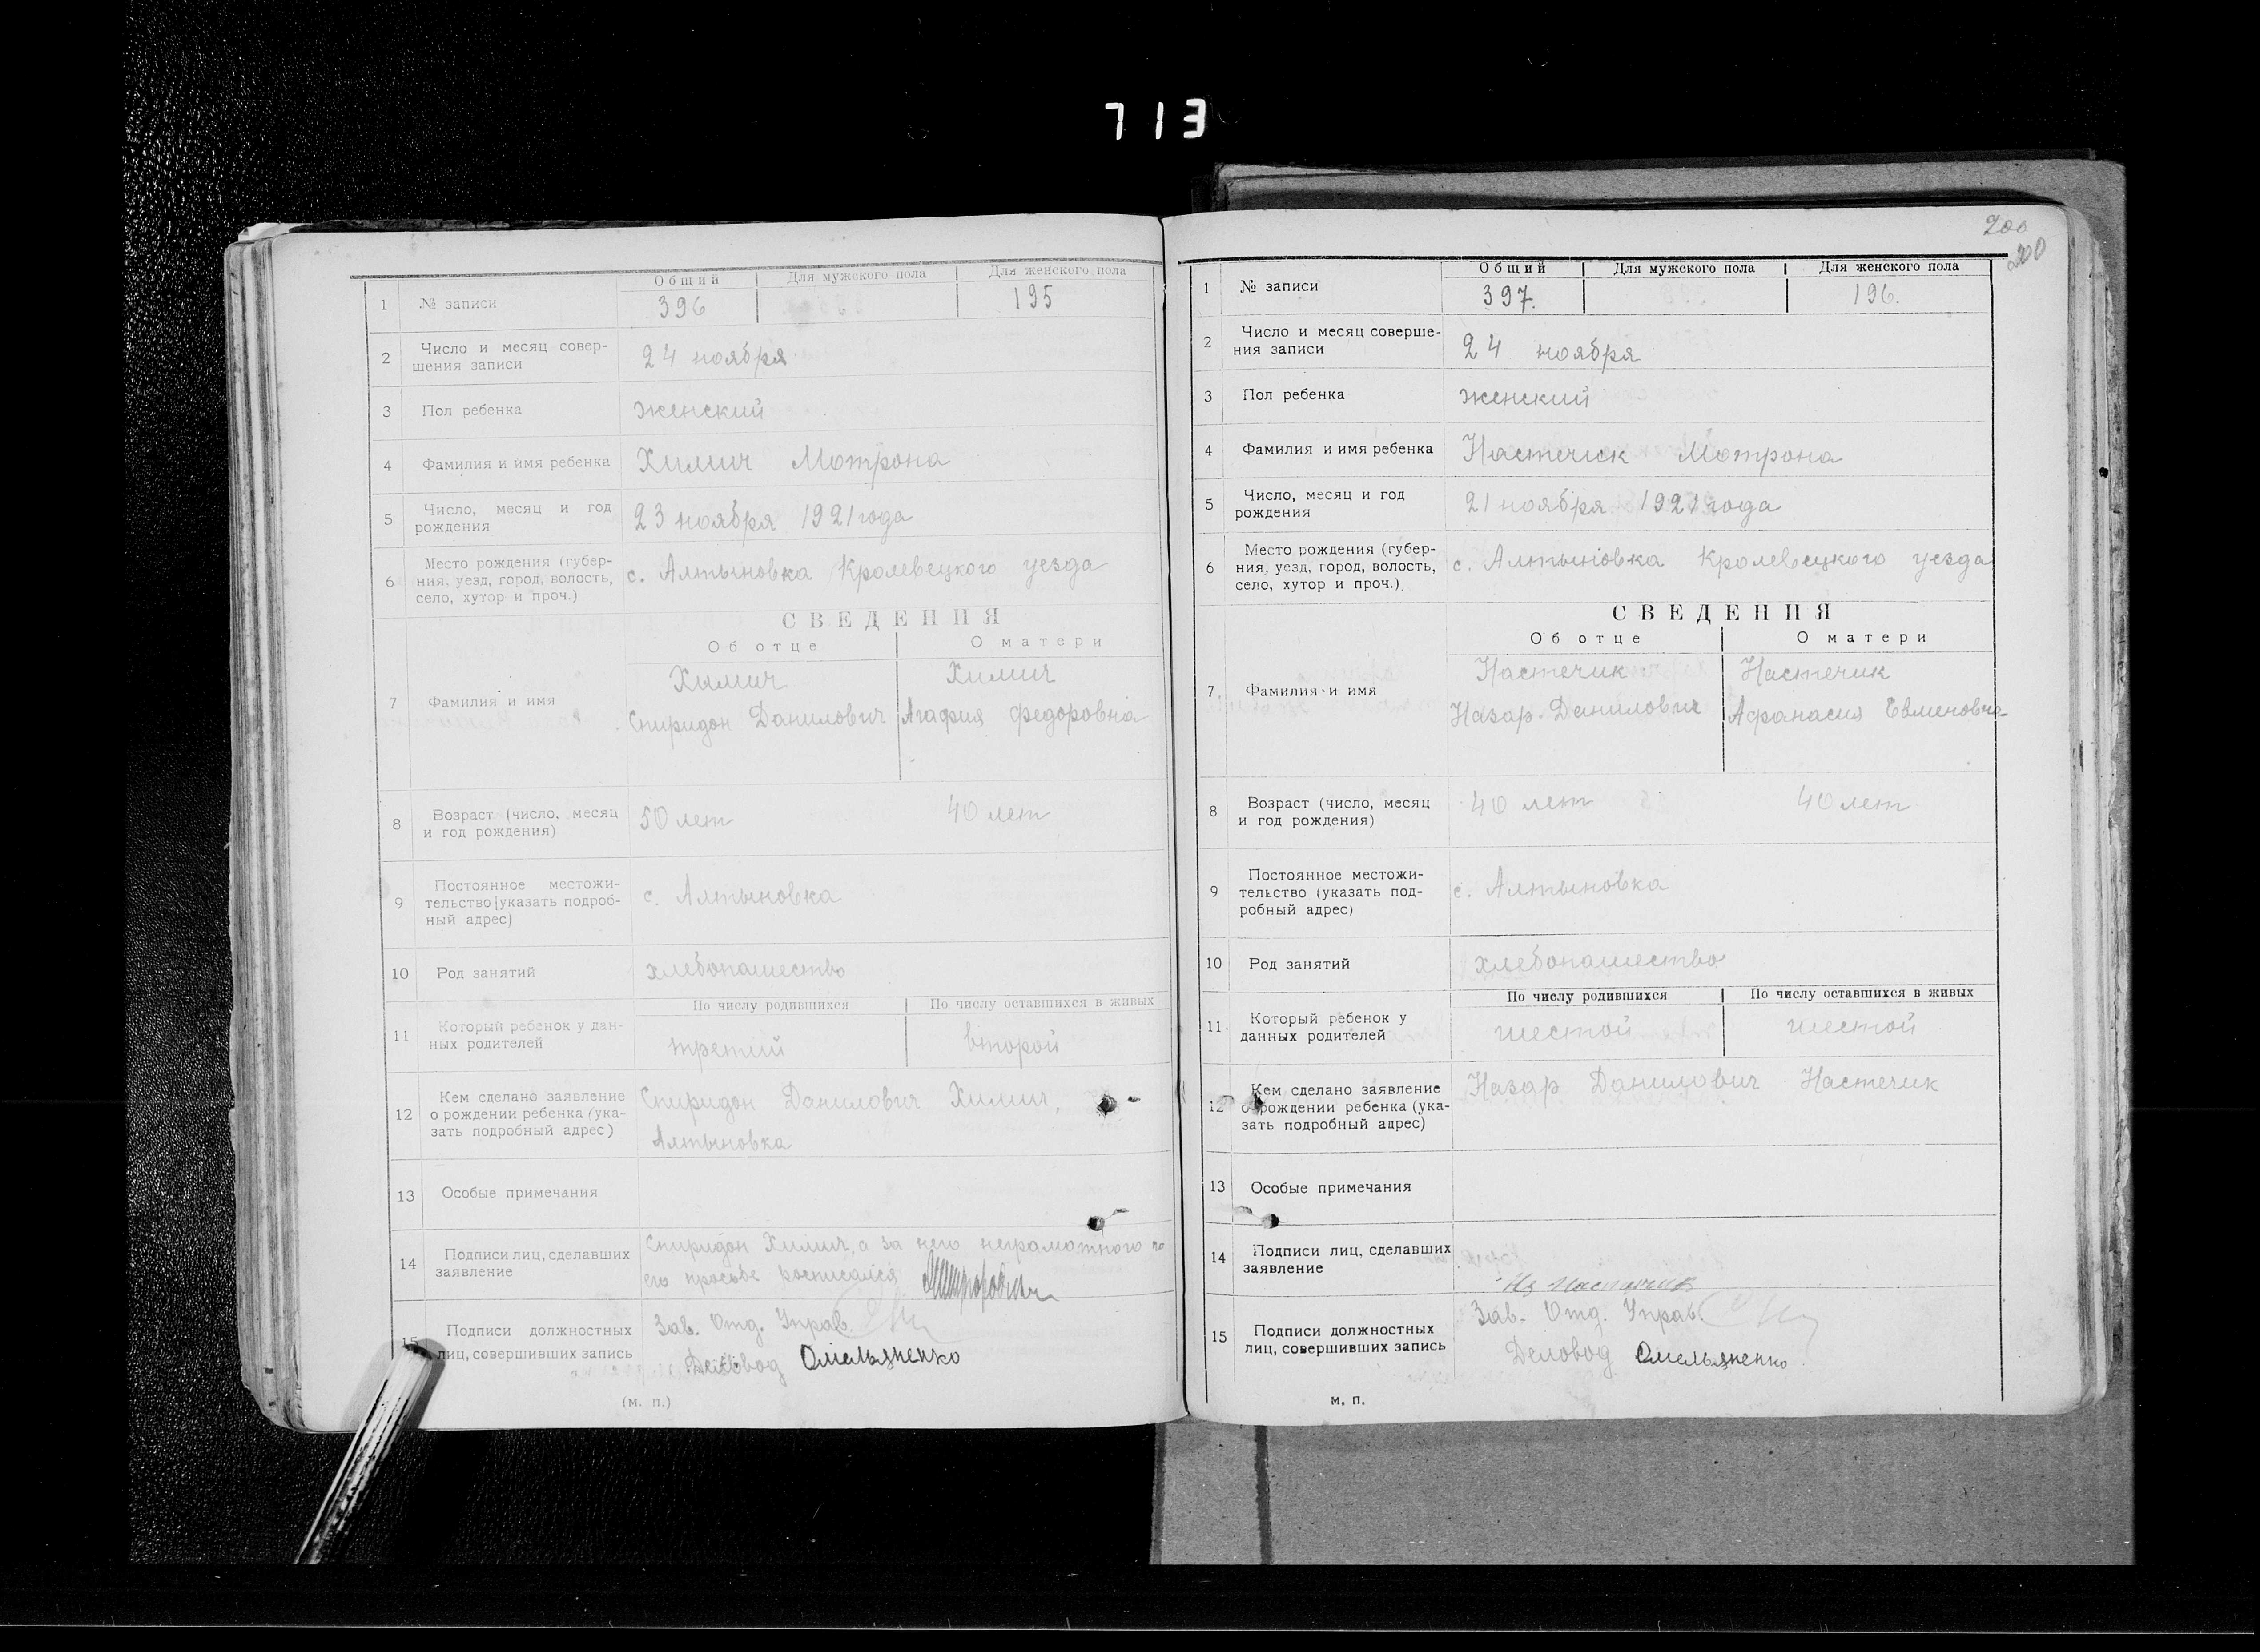 713
Общий Для мужского пола Для женского пола
1 № записи 396 195
2 Число и месяц совер-
шения записи 24 ноября
3 Пол ребенка женский
4 Фамилия и имя ребенка Химич Мотрона
5 Число, месяц и год
рождения 23 ноября 1921 года
6 Место рождения (губер-
ния, уезд, город, волость, с. Алтыновка Кролевецкого уезда
село, хутор и проч.)
СВЕДЕНИЯ
Об отце О матери
7 Фамилия и имя Химич Химич
Спиридон Данилович Агафия Федоровна
8 Возраст (число, месяц
и год рождения) 50 лет 40 лет
9 Постоянное местожи-
тельство (указать подроб- с. Алтыновка
ный адрес)
10 Род занятий хлебопашество
По числу родившихся По числу оставшихся в живых
11 Который ребенок у дан-
ных родителей третий второй
12 Кем сделано заявление Спиридон Данилович Химич,
о рождении ребенка (ука-
зать подробный адрес) Алтыновка
13 Особые примечания
14 Подписи лиц, сделавших Спиридон Химич, а за него неграмотного по
заявление его просьбе росписался
15 Подписи должностных Зав. Отд. Управ.
лиц, совершивших запись Деловод Омельяненко
(м. п.)
200
200
Общий Для мужского пола Для женского пола
1 № записи 397. 196.
2 Число и месяц соверше-
ния записи 24 ноября
3 Пол ребенка женский
4 Фамилия и имя ребенка Настечик Мотрона
5 Число, месяц и год
рождения 21 ноября 1921 года
6 Место рождения (губер-
ния, уезд, город, волость, с. Алтыновка Кролевецкого уезда
село, хутор и проч.)
СВЕДЕНИЯ
Об отце О матери
7 Фамилия и имя Настечик Настечик
Назар Данилович Афанасия Евменовна
8 Возраст (число, месяц
и год рождения) 40 лет 40 лет
9 Постоянное местожи-
тельство (указать под- с. Алтыновка
робный адрес)
10 Род занятий хлебопашество
По числу родившихся По числу оставшихся в живых
11 Который ребенок у
данных родителей шестой шестой
12 Кем сделано заявление Назар Данилович Настечик
о рождении ребенка (ука-
зать подробный адрес)
13 Особые примечания
14 Подписи лиц, сделавших
заявление
15 Подписи должностных Зав. Отд. Управ.
лиц, совершивших запись Деловод Омельяненко
м. п.